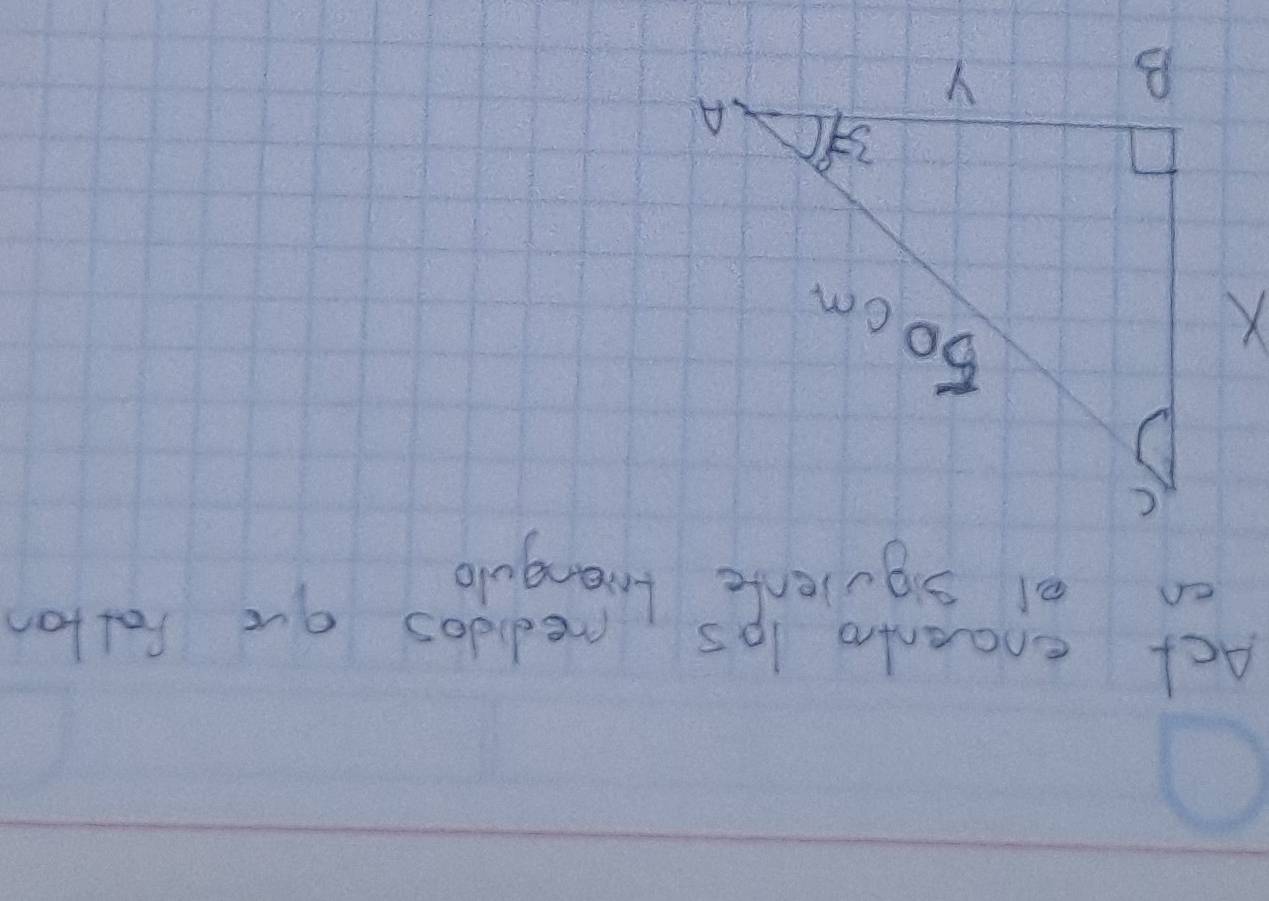 Act encuentra las medidas que faltan
en el siguiente triangulo
C
50 cm
X
37°
A
Y
B